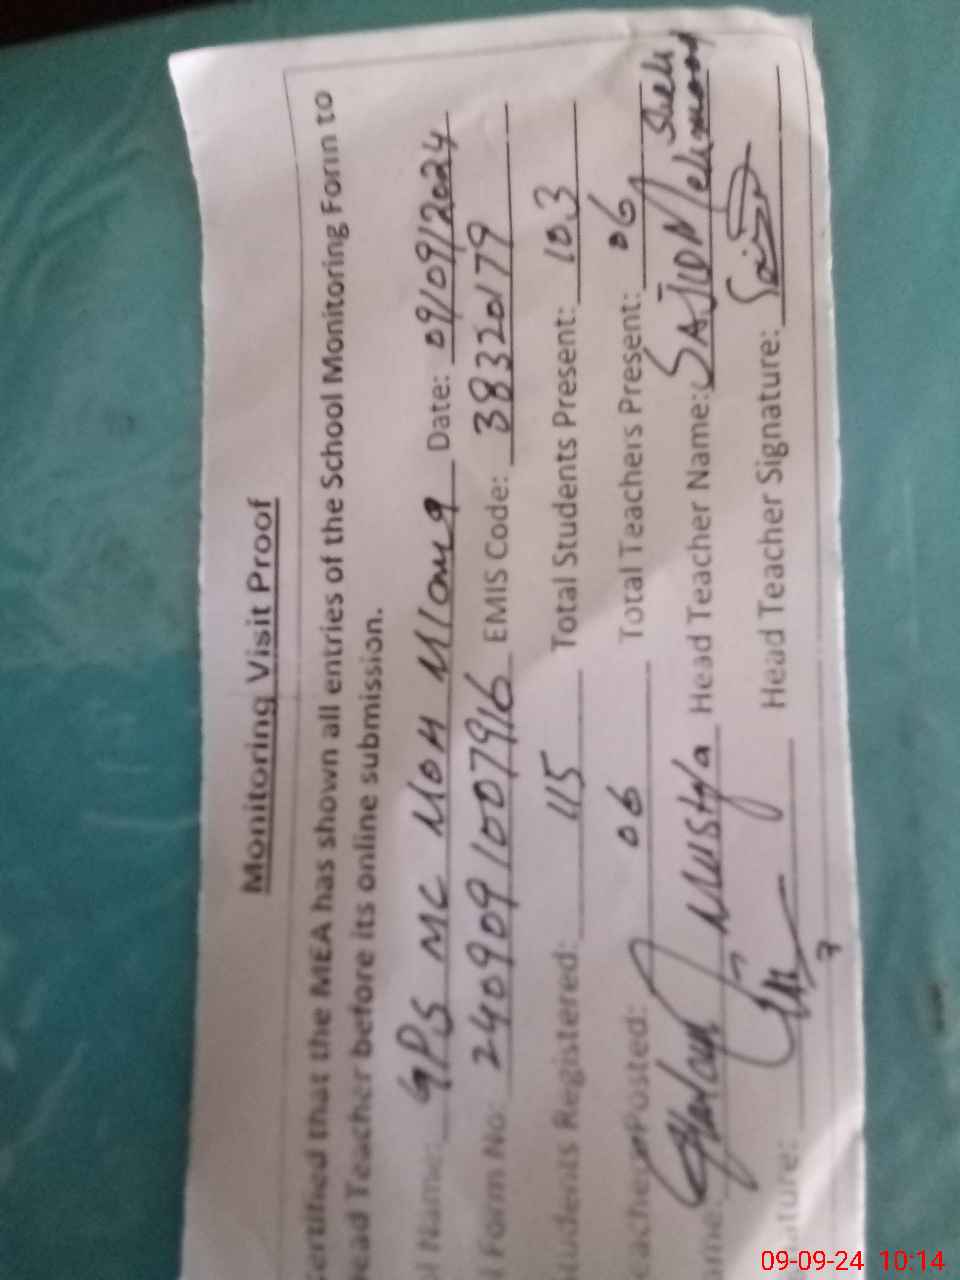 Monitoring Visit Proof
ertified that the MEA has shown all entries of the School Monitoring Form to
ead Teacher before its online submission.
l Name: GPS MC Moh Date: 09/09/2024
l Form No: 240909100 7916 EMIS Code: 38320179
udents Registered: 115 Total Students Present: 103
eachers Posted: 06 Total Teachers Present: 06
ame: Mustfa Head Teacher Name: SAJJDN
ature: Head Teacher Signature:
09-09-24 10:14